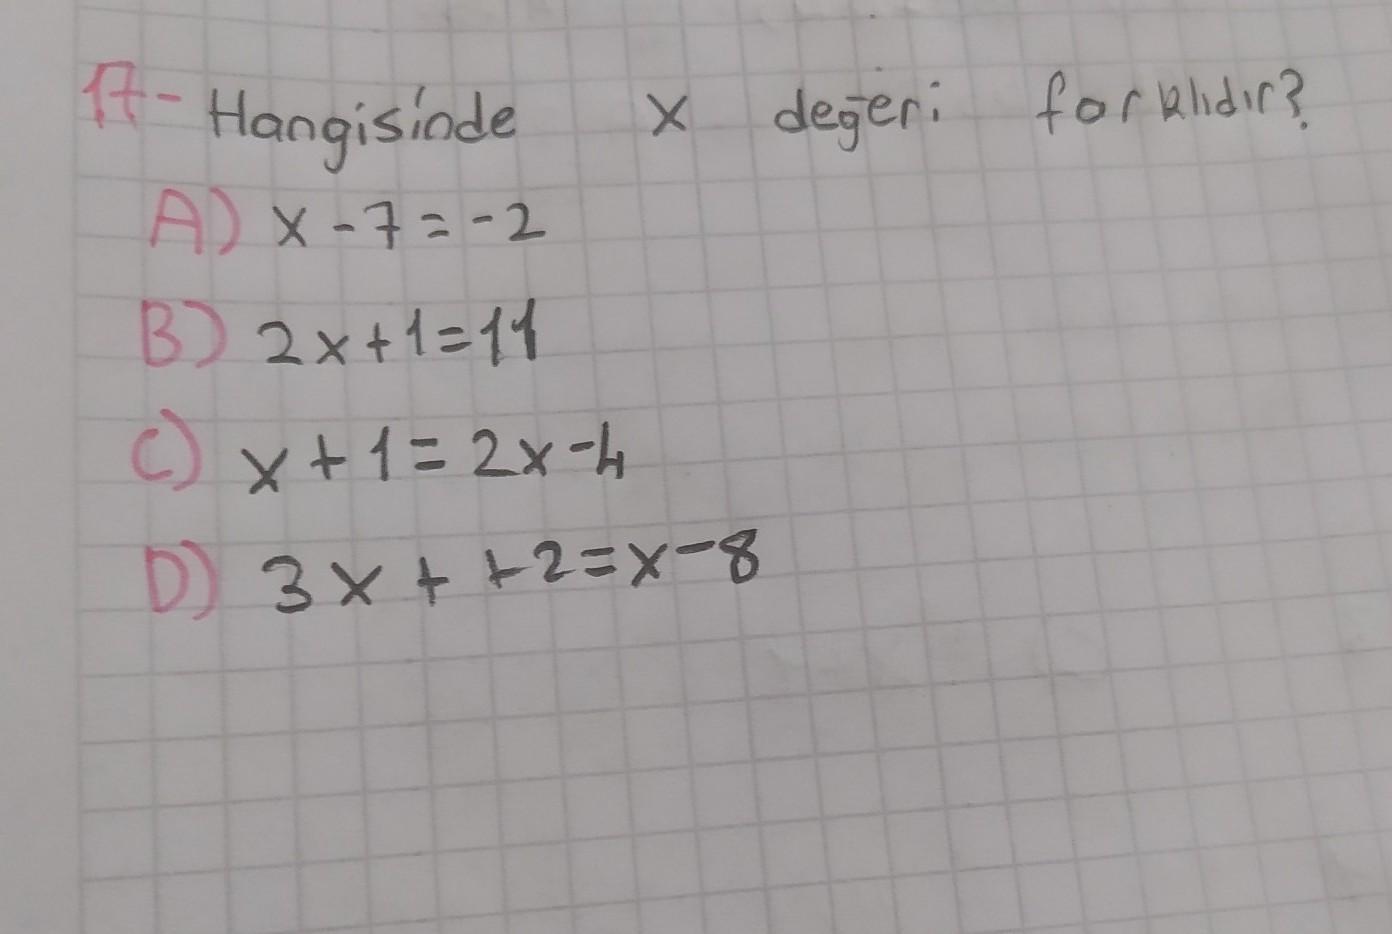 17- Hangisinde x değeri farklıdır?
A) x - 7 = -2
B) 2x + 1 = 11
C) x + 1 = 2x - 4
D) 3x + + 2 = x - 8